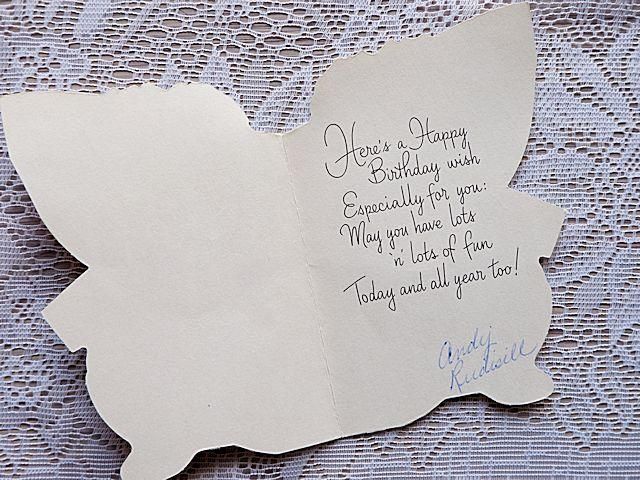 Here's a Happy
Birthday wish
Especially for you:
May you have lots
'n' lots of fun
Today and all year too!
Andy
Rudisill